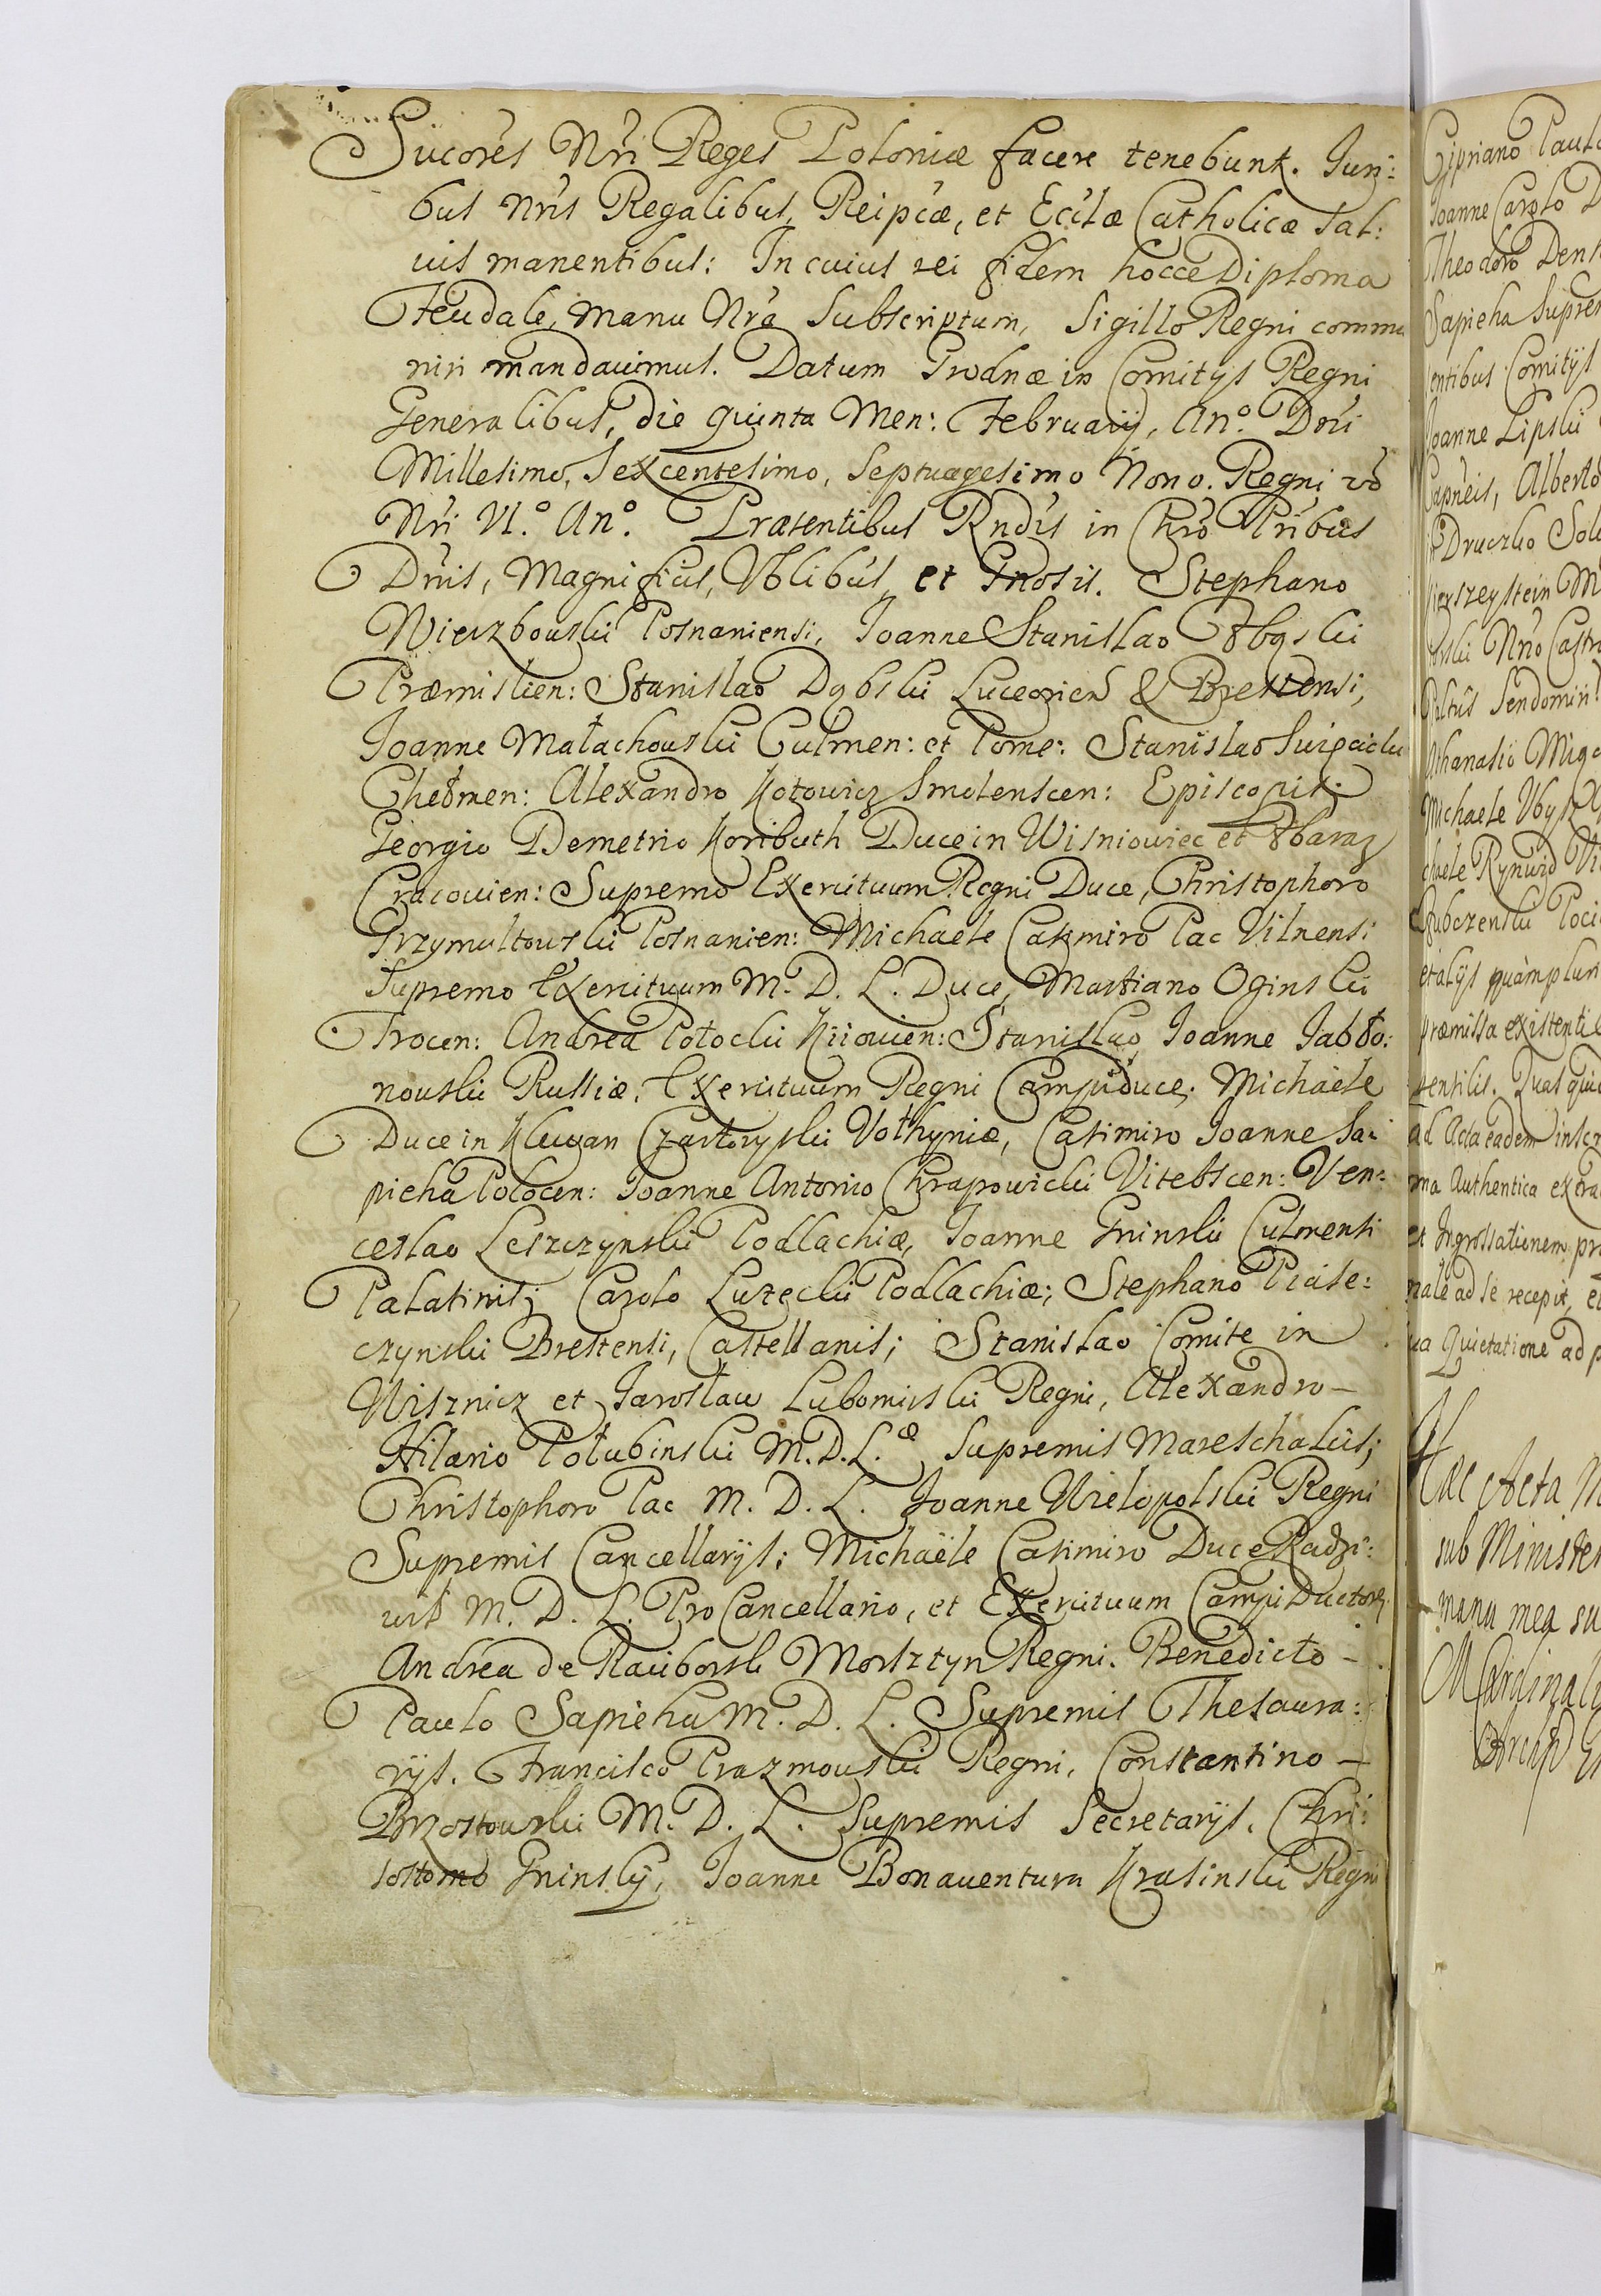 Sucores Nri Reges Poloniæ facere tenebunt. Juri:
bus Nris Regalibus, Reipcæ, et Eccl̃æ Catholicæ Sal:
uis manentibus: In cuius rei fidem hocce Diploma
Feudale, Manu Nrã Subscriptum, Sigillo Regni commu
niri mandauimus. Datum Grodnæ in Comitijs Regni
Generalibus, die quinta Men: Februarij, An.º Dñi
Millesimo, Sexcentesimo, Septuagesimo Nono. Regni võ
Nri VI.º An.º Præsentibus Rndis in Chrõ Pribus
Dnis, Magnificis, Gnosis. et Stephano
Wierzbouski Posnaniensi, Joanne Stanislao Zbąski
Præmislien: Stanislao Dąbski Luceorien & Brestensi,
Joanne Małachouski Culmen: et Pome: Stanislao Swięcicki
Chełmen: Alexandro Kotowicz Smolenscen: Episcopis;
Georgio Demetrio Koributh Duce in Wisniowiec et Zbaraz
Cracouien: Supremo Exercituum Regni Duce, Christophoro
Grzymultouski Posnanien: Michaele Casimiro Pac Vilnensi
Supremo Exercituum M. D. L. Duce, Martiano Oginski
Trocen: Andrea Potocki Kiiouien: Stanislao Joanne Jabło:
nouski Russiæ, Exercituum Regni Campiduce, Michaele
Duce in Klewan Czartoryski Vołhyniæ, Casimiro Joanne Sa:
pieha Polocen: Joanne Antonio Chrapowicki Vitebscen: Ven:
ceslao Leszczynski Podlachiæ, Joanne Gninski Culmensi
Palatinis; Carolo Luzecki Podlachiæ; Stephano Piase:
czynski Brestensi, Castellanis; Stanislao Comite in
Wisznicz et Jarosław Lubomirski Regni, Alexandro –
Hilario Połubinski M. D. L.æ Supremis Mareschalcis;
Christophoro Pac M. D. L. Joanne Wielopolski Regni
Supremis Cancellarijs; Michaële Casimiro Duce Radzi:
uił M. D. L. Pro Cancellario, et Exercituum Campi Ductore,
Andrea de Raciborsk Morsztyn Regni. Benedicto –
Paulo Sapieha M. D. L. Supremis Thesaura:
rijs. Francisco Prazmouski Regni, Constantino –
Brzostouski M. D. L. Supremis Secretarijs. Chri:
sostomo Gninsky, Joanne Bonauentura Krasinski Regni
Cipriano Paulo
Joanne Carolo
Theodoro Denh
Sapieha Suprem
Comitijs
Joanne Lipski
Alberto
Druczko
Nrõ Castr
Sendomiri
Athanasio
Michaele
Rynwid
etalijs quàmplur
præmissa existentib
Quas
ad Acta eadem
Authentica
et Ingrossationem
ad se recepit,
Quietatione ad
Hæc Acta
sub Minister
manu mea su